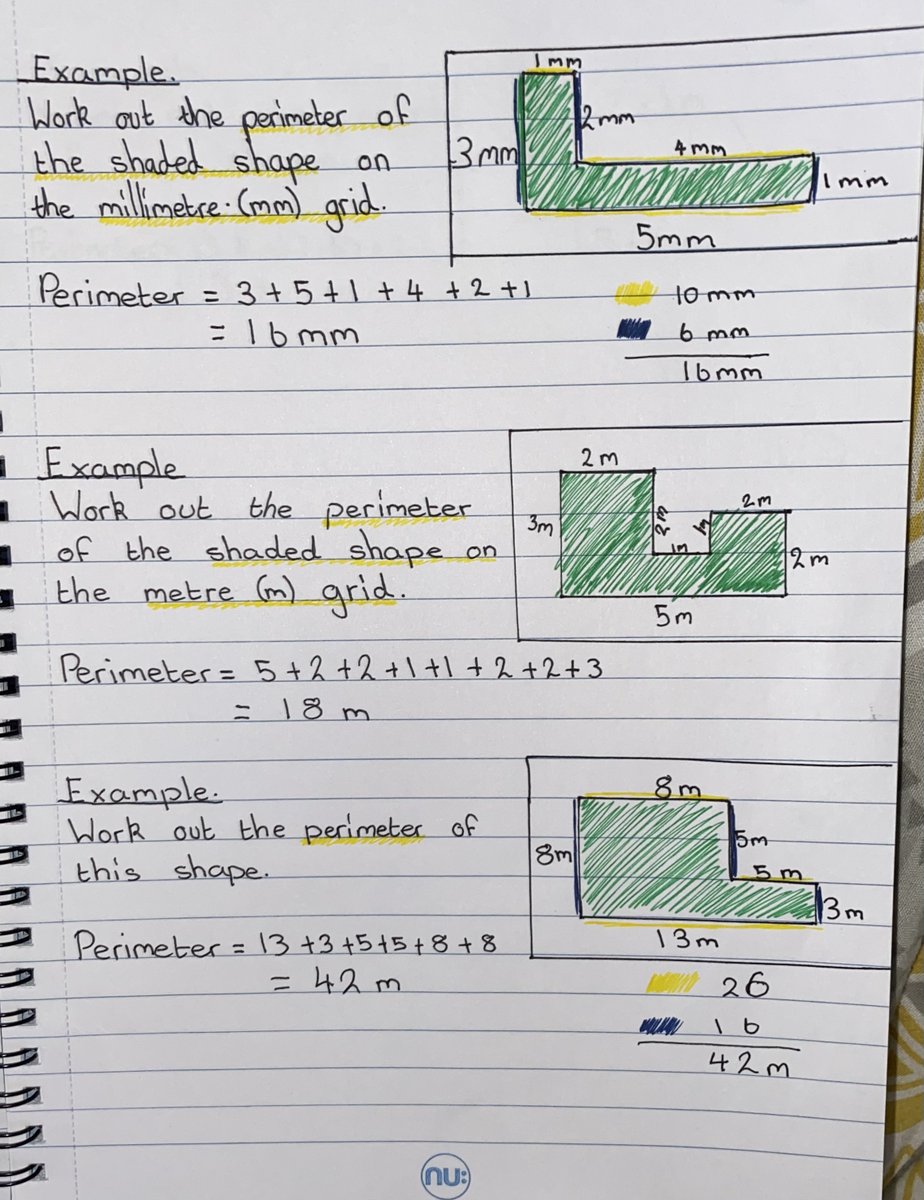 Example.
Work out the perimeter of
the shaded shape on
the millimetre (mm) grid.
1mm
2mm
3mm
4mm
1mm
5mm
Perimeter = 3+5+1+4+2+1
= 16mm
10mm
6 mm
16mm
Example
Work out the perimeter
of the shaded shape on
the metre (m) grid.
2m
3m
2m
1m
1m
2m
2m
5m
Perimeter = 5+2+2+1+1+2+2+3
= 18 m
Example.
Work out the perimeter of
this shape.
8m
8m
5m
5m
3m
13m
Perimeter = 13+3+5+5+8+8
= 42 m
26
16
42m
nu: